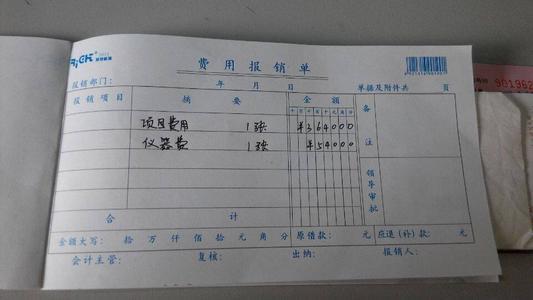 费用报销单
报销部门: 年 月 日 单据及附件共 页
报销项目 摘要 金额 备注
十万千百十元角分
项目费用 1张 ¥364000
仪器费 1张 ¥54000
领导审批
合计
金额大写: 拾 万 仟 佰 拾 元 角 分 原借款: 元 应退(补)款: 元
会计主管: 复核: 出纳: 报销人: